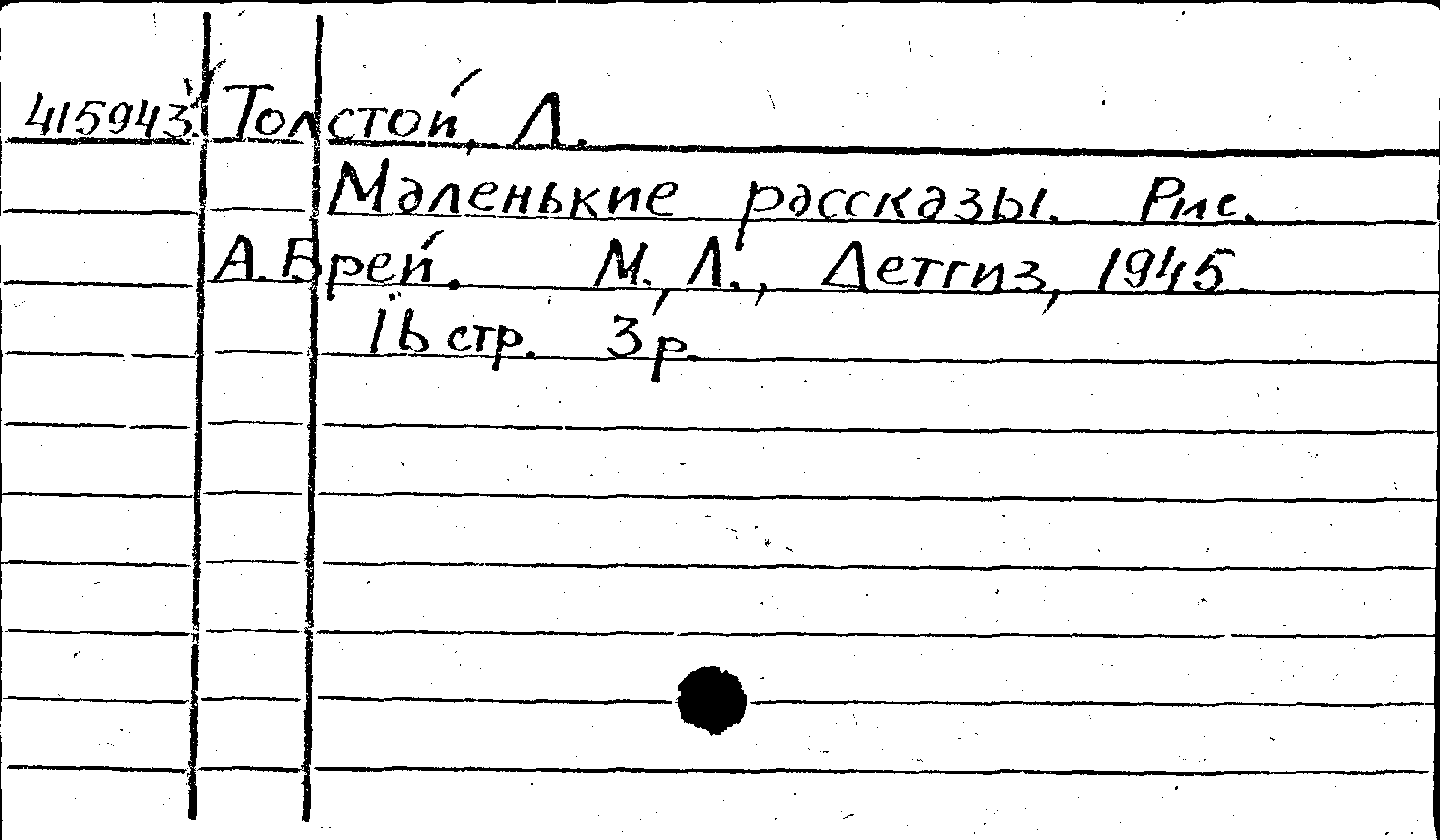 415943 Толстой, Л.
Маленькие рассказы. Рис.
А. Брей. М., Л., Детгиз, 1945.
16 стр. 3 р.